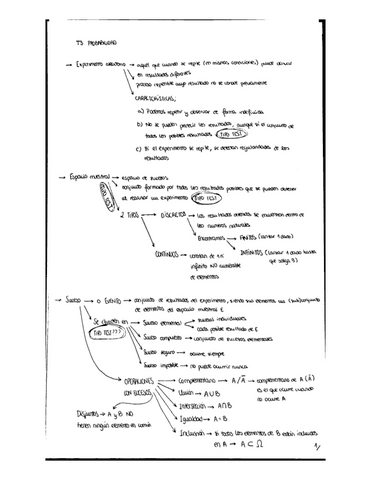 T3 PROBABILIDAD
→ Experimento aleatorio → aquel que cuando se repite (en mismas condiciones) puede derivar
en resultados diferentes
proceso repetible cuyo resultado no se conoce previamente
CARACTERÍSTICAS:
a) Podemos repetir y observar de forma indefinida
b) No se pueden predecir los resultados, aunque sí el conjunto de
todos los posibles resultados (TIPO TEST)
c) Si el experimento se repite, se detectan regularidades de los
resultados
→ Espacio muestral → espacio de sucesos
conjunto formado por todos los resultados posibles que se pueden obtener
al realizar un experimento (TIPO TEST)
TIPO TEST
2 TIPOS → DISCRETOS → los resultados obtenidos se encuentran dentro de
los números naturales
Encontramos → FINITOS (lanzar 1 dado)
INFINITOS (lanzar 1 dado hasta
que salga 5)
CONTINUOS → constan de un
infinito NO numerable
de elementos
→ Suceso → o Evento → conjunto de resultados del experimento, siendo sus elementos un (sub)conjunto
de elementos del espacio muestral E
Se clasifican en
TIPO TEST???
→ Suceso elemental → sucesos individuales
cada posible resultado de E
Suceso compuesto → conjunto de sucesos elementales
Suceso seguro → ocurre siempre
Suceso imposible → no puede ocurrir nunca
OPERACIONES
CON SUCESOS
→ Complementario → A / Ā → complementario de A (Ā)
es el que ocurre cuando
no ocurre A
Unión → A∪B
Intersección → A∩B
Igualdad → A = B
Inclusión → Si todos los elementos de B están incluidos
en A → A ⊂ Ω
Disjuntos → A y B NO
tienen ningún elemento en común
1/